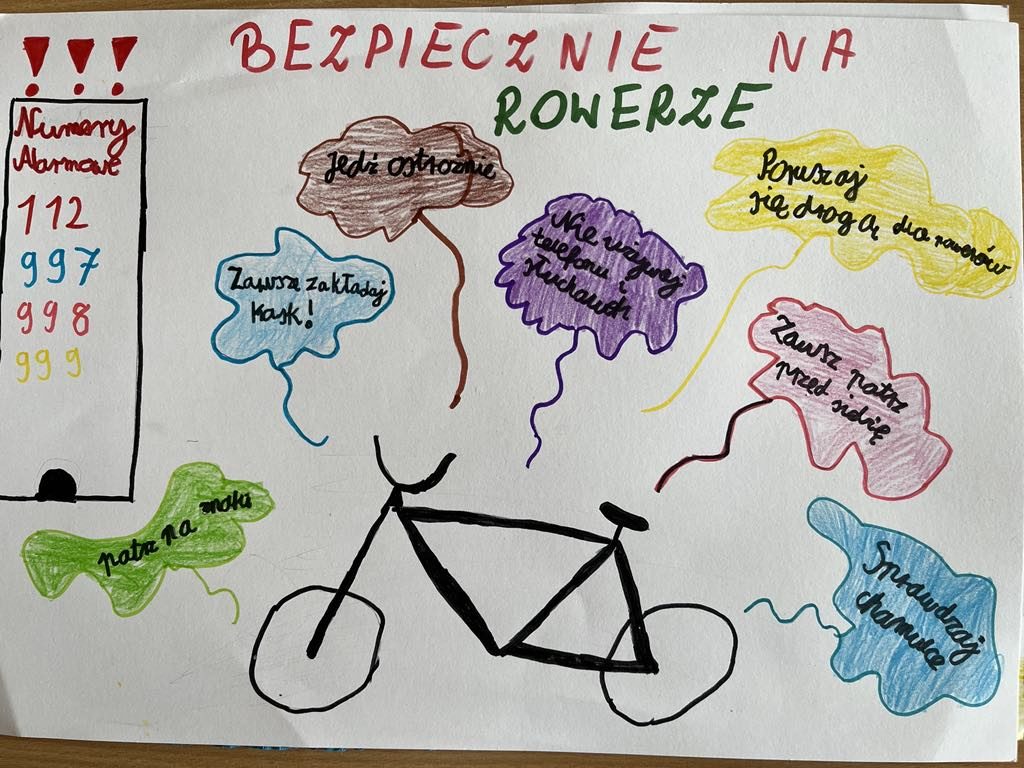 !!!
BEZPIECZNIE NA
ROWERZE
Numery
Alarmowe
112
997
998
999
Jedź ostrożnie
Zawsze zakładaj
kask!
Nie używaj
telefonu i
słuchawek
Poruszaj
się drogą dla rowerów
Zawsz patrz
przed siebię
patrz na znaki
Sprawdzaj
chamulce